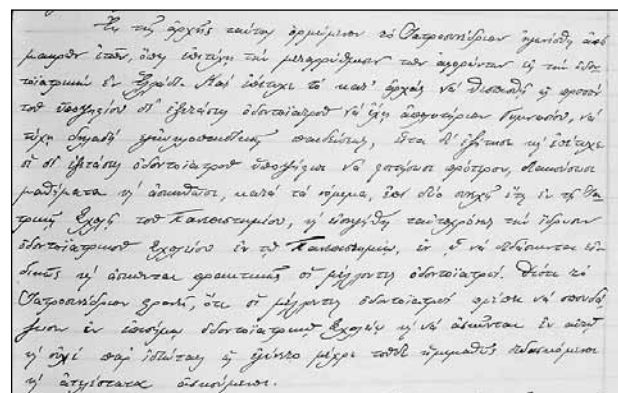 Ἐκ τῆς ἀρχῆς ταύτης ὁρμώμενον τὸ Ἰατροσυνέδριον ἠγωνίσθη ἀπὸ
μακρῶν ἐτῶν, ὅπως ἐπιτύχῃ τὴν μεταρρύθμισιν τῶν ἀφορώντων εἰς τὴν ὀδον-
τοϊατρικὴν ἐν Ἑλλάδι. Καὶ ἐπέτυχε τὸ κατ' ἀρχὰς νὰ θεσπισθῇ ἡ
τοῦ ὑποψηφίου δι' ἐξέτασιν ὀδοντοϊατροῦ νὰ ἔχῃ ἀπολυτήριον Γυμνασίου, νὰ
τύχῃ δηλαδὴ ἐγκυκλοπαιδικῆς παιδεύσεως, εἶτα δ' ἐζήτησε καὶ ἐπέτυχε
οἱ δι' ἐξέτασιν ὀδοντοϊατροῦ ὑποψήφιοι νὰ φοιτήσωσι πρότερον, διακούσωσι
μαθήματα καὶ ἀσκηθῶσι, κατὰ τὰ νόμιμα, ἐπὶ δύο συνεχῆ ἔτη ἐν τῇ Ἰα-
τρικῇ Σχολῇ τοῦ Πανεπιστημίου, καὶ εἰσηγήθη ταὐτοχρόνως τὴν ἵδρυσιν
ὀδοντοϊατρικοῦ Σχολείου ἐν τῷ Πανεπιστημίῳ, ἐν ᾧ νὰ διδάσκωνται εἰ-
δικῶς καὶ ἀσκῶνται πρακτικῶς οἱ μέλλοντες ὀδοντοϊατροί. Διότι τὸ
Ἰατροσυνέδριον φρονεῖ, ὅτι οἱ μέλλοντες ὀδοντοϊατροὶ πρέπει νὰ σπουδά-
ζωσιν ἐν ἐπισήμῳ ὀδοντοϊατρικῷ Σχολείῳ καὶ νὰ ἀσκῶνται ἐν αὐτῷ
καὶ οὐχὶ παρ' ἰδιώταις ὡς ἐγίνετο μέχρι τοῦδε ἡμιμαθῶς διδασκόμενοι
καὶ ἀτελέστατα ἀσκούμενοι.